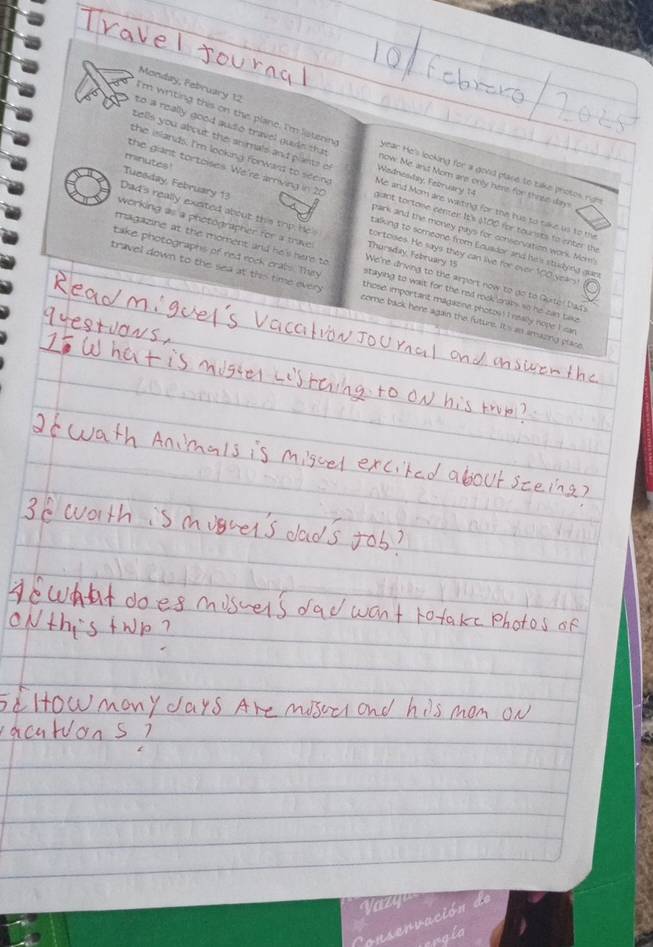 Travel Journal
10/febrero/2025
Monday, February 12
I'm writing this on the plane. I'm listening
to a really good audio travel guide that
tells you about the animals and plants of
the islands. I'm looking forward to seeing
the giant tortoises. We're arriving in 20
minutes!
Tuesday, February 13
Dad's really excited about this trip. He's
working as a photographer for a travel
magazine at the moment and he's here to
take photographs of red rock crabs. They
travel down to the sea at this time every
year. He's looking for a good place to take photos right
now. Me and Mom are only here for three days.
Wednesday, February 14
Me and Mom are waiting for the bus to take us to the
giant tortoise center. It's $100 for tourists to enter the
park and the money pays for conservation work. Mom's
talking to someone from Ecuador and he's studying giant
tortoises. He says they can live for over 100 years!
Thursday, February 15
We're driving to the airport now to go to Quito! Dad's
staying to wait for the red rock crabs so he can take
those important magazine photos! I really hope I can
come back here again the future. It's an amazing place.
Read miguel's vacation Journal and answer the
questions.
1ō What is miguel Listening to oN his trip?
2ō wath Animals is miguel excited about seeing?
3ō wath is miguel's dad's Job?
4ō what does miguel's dad want to take Photos of
oN this trip?
5ō How many days Are miguel and his mom oN
vacations?
Conservación de